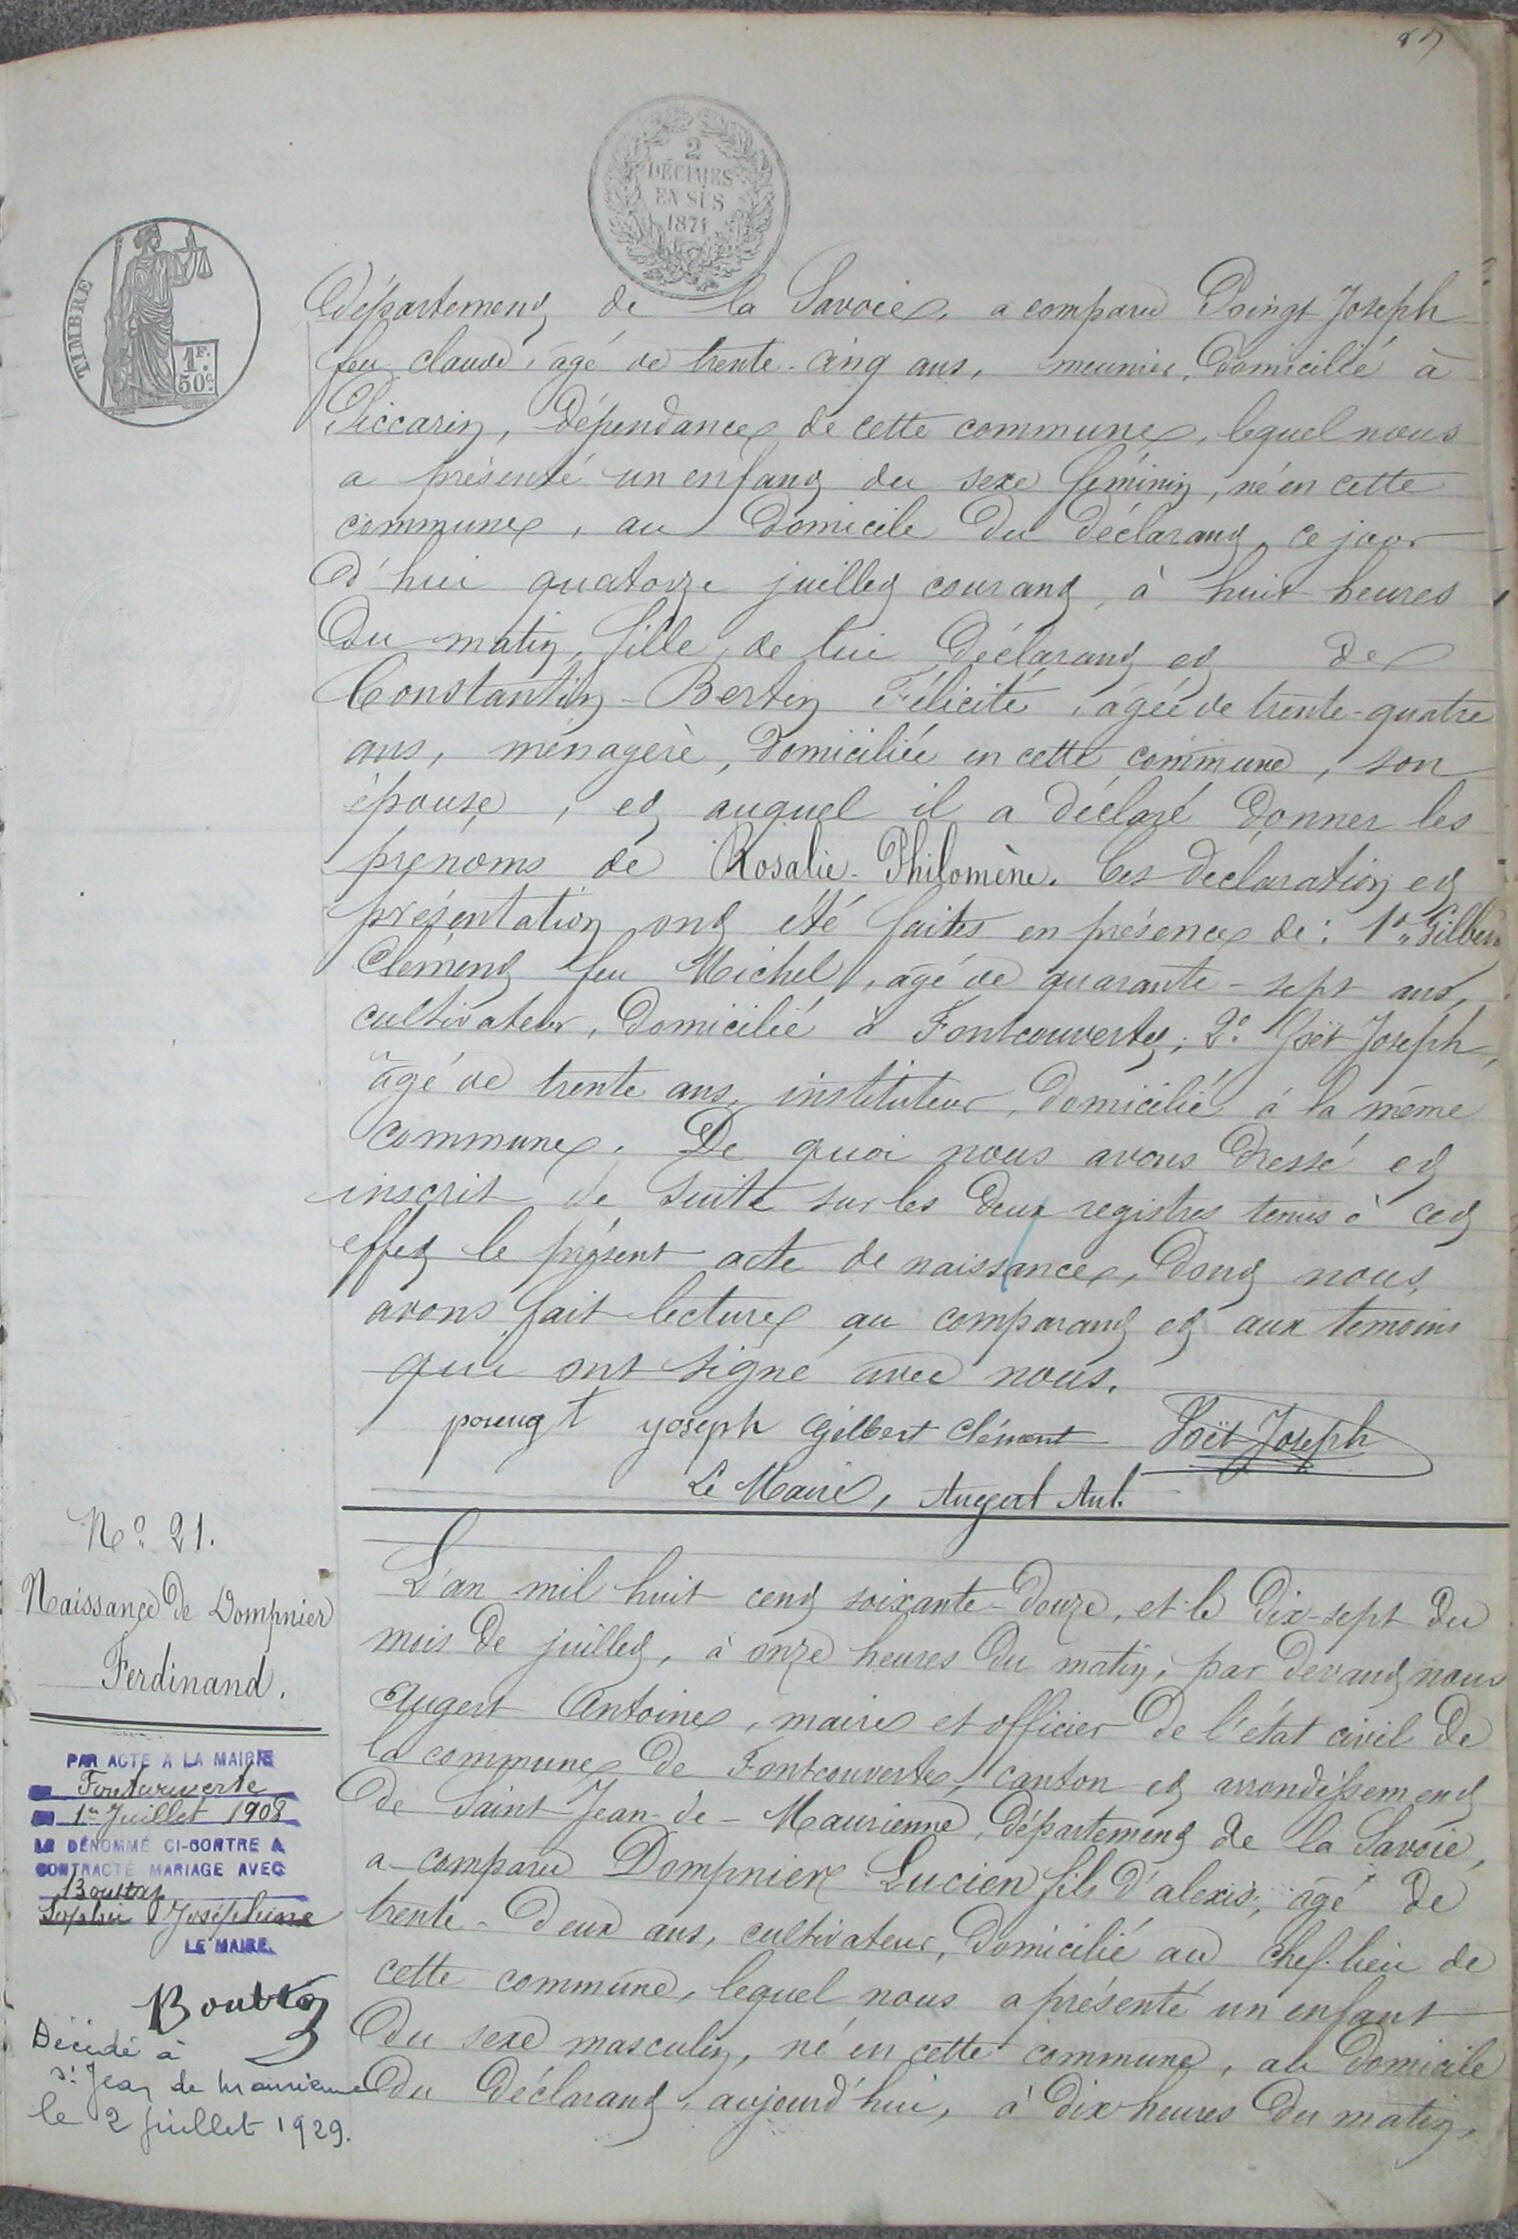 87
2
DÉCIMES
EN SUS
1871
TIMBRE
1F.
50c.
département de la Savoie, a comparu Poingt Joseph
feu claude, âgé de trente-cinq ans, meunier, domicilié à
Piccarin, dépendance de cette commune, lequel nous
a présenté un enfant du sexe féminin, né en cette
commune, au domicile du déclarant, ce jour
d'hui quatorze juillet courant, à huit heures
du matin, fille de lui déclarant et de
Constantin-Bertin Félicité, âgée de trente-quatre
ans, ménagère, domiciliée en cette commune, son
épouse, et auquel il a déclaré donner les
prénoms de Rosalie-Philomène. Ces déclaration et
présentation ont été faites en présence de: 1° Gilbert
Clément feu Michel, âgé de quarante-sept ans,
cultivateur, domicilié à Fontcouverte; 2° Joët Joseph,
âgé de trente ans, instituteur, domicilié à la même
commune. De quoi nous avons dressé et
inscrit de suite sur les deux registres tenus à cet
effet le présent acte de naissance, dont nous
avons fait lecture au comparant et aux témoins
qui ont signé avec nous.
poiengt yoseph Gilbert Clément Joët Joseph
Le Maire, Augert Ant.
No 21.
Naissance de Dompnier
Ferdinand.
PAR ACTE A LA MAIRIE
Fontcouverte
1er Juillet 1908
LE DÉNOMMÉ CI-CONTRE A
CONTRACTÉ MARIAGE AVEC
Bouttaz
Sophie Joséphine
LE MAIRE.
Bouttaz
Décédé à
St Jean de Maurienne
le 2 juillet 1929.
L'an mil huit cent soixante-douze, et le dix-sept du
mois de juillet, à onze heures du matin, par devant nous
Augert Antoine, maire et officier de l'état civil de
la commune de Fontcouverte, canton et arrondissement
de Saint-Jean-de-Maurienne, département de la Savoie,
a comparu Dompnier Lucien fils d'alexis, âgé de
trente-deux ans, cultivateur, domicilié au chef-lieu de
cette commune, lequel nous a présenté un enfant
du sexe masculin, né en cette commune, au domicile
du déclarant, aujourd'hui, à dix heures du matin,